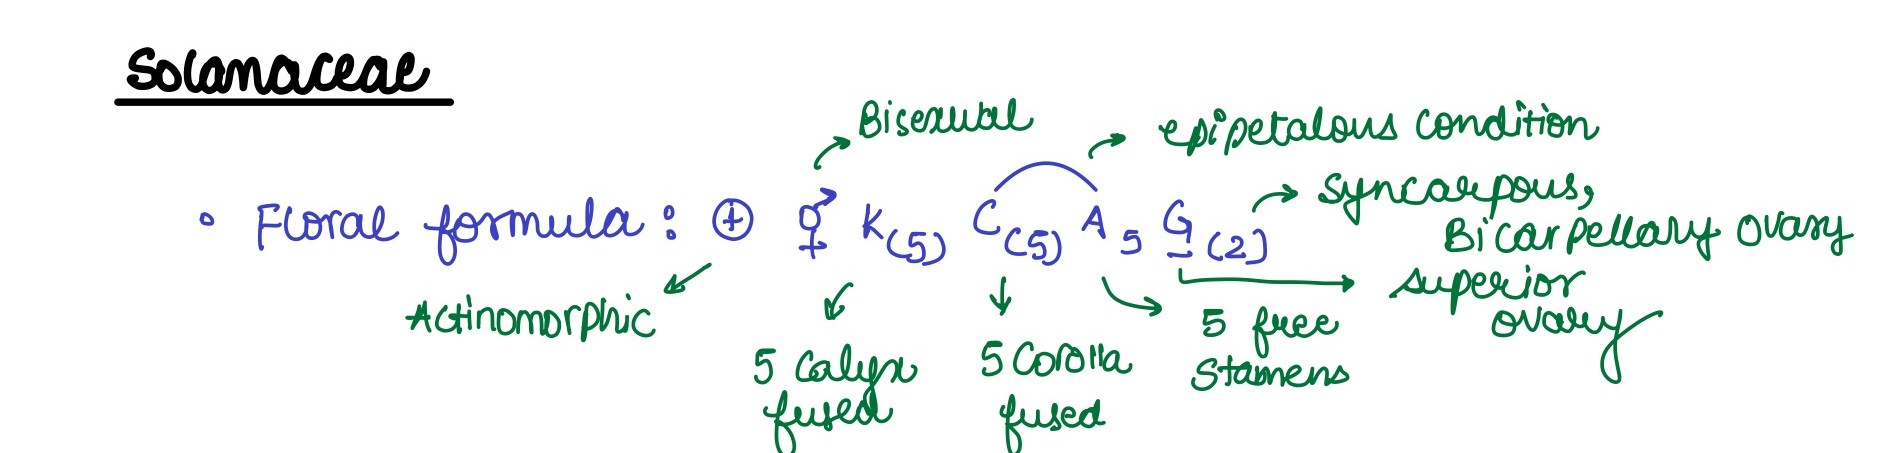 Solanaceae
Bisexual
epipetalous condition
• Floral formula: ⊕ ⚥ K(5) C(5) A5 G(2)
syncarpous,
Bicarpellary ovary
superior
ovary
Actinomorphic
5 calyx
fused
5 Corolla
fused
5 free
stamens